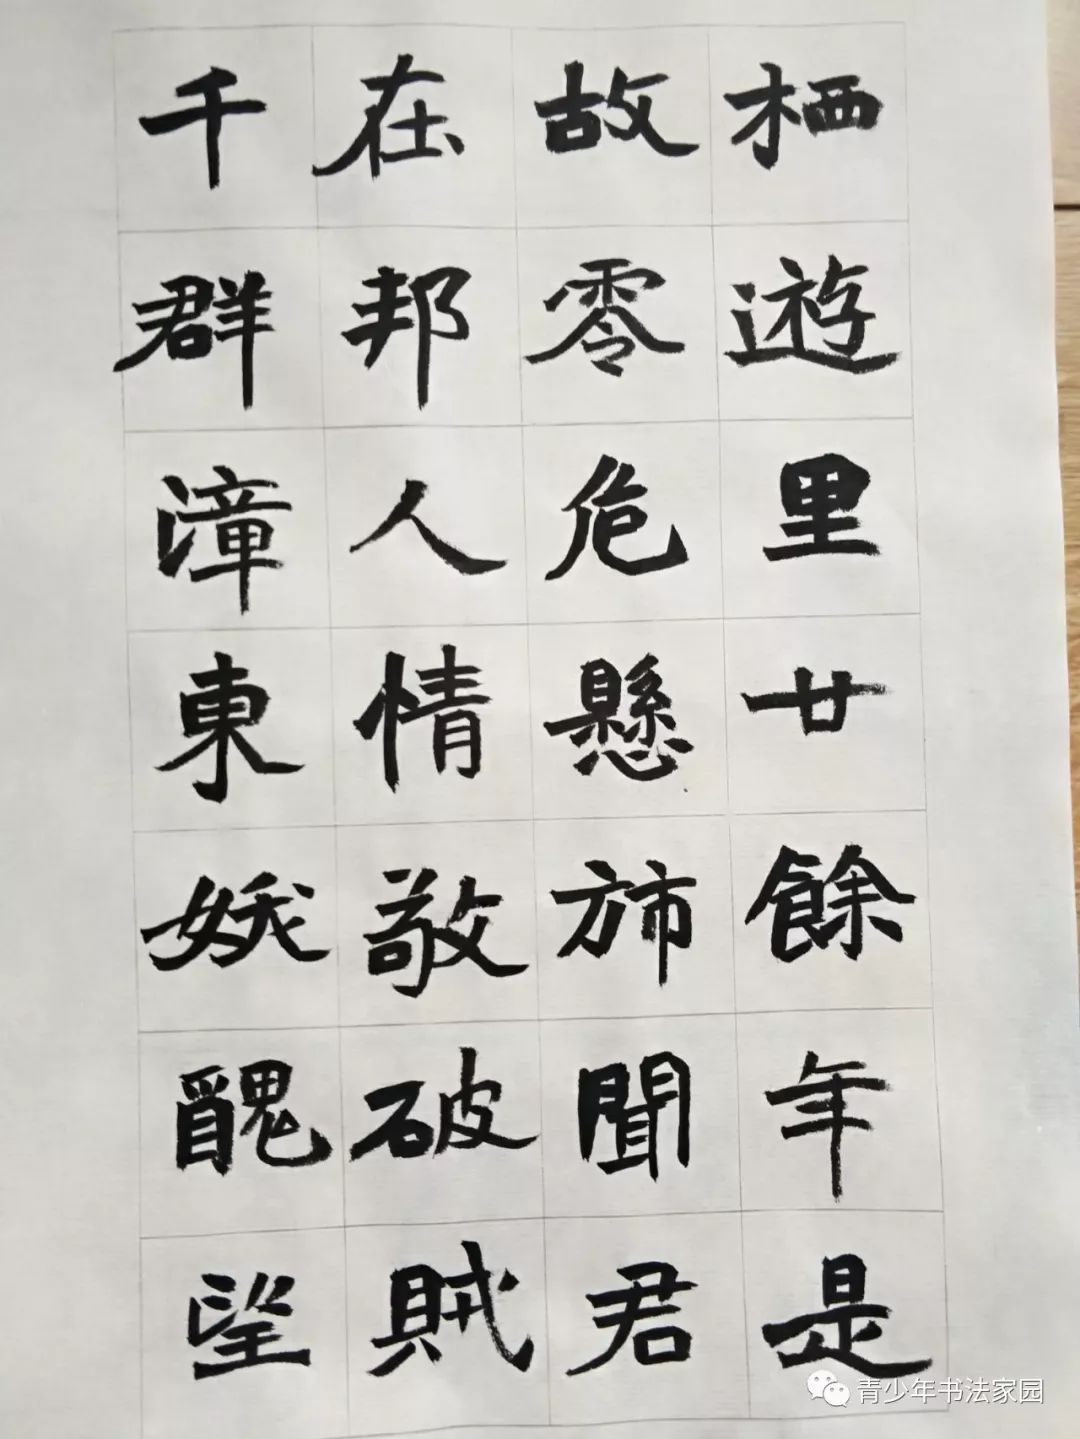 栖遊里廿餘年是
故零危懸斾聞君
在邦人情敬破賊
千群漳東妖醜望
青少年书法家园